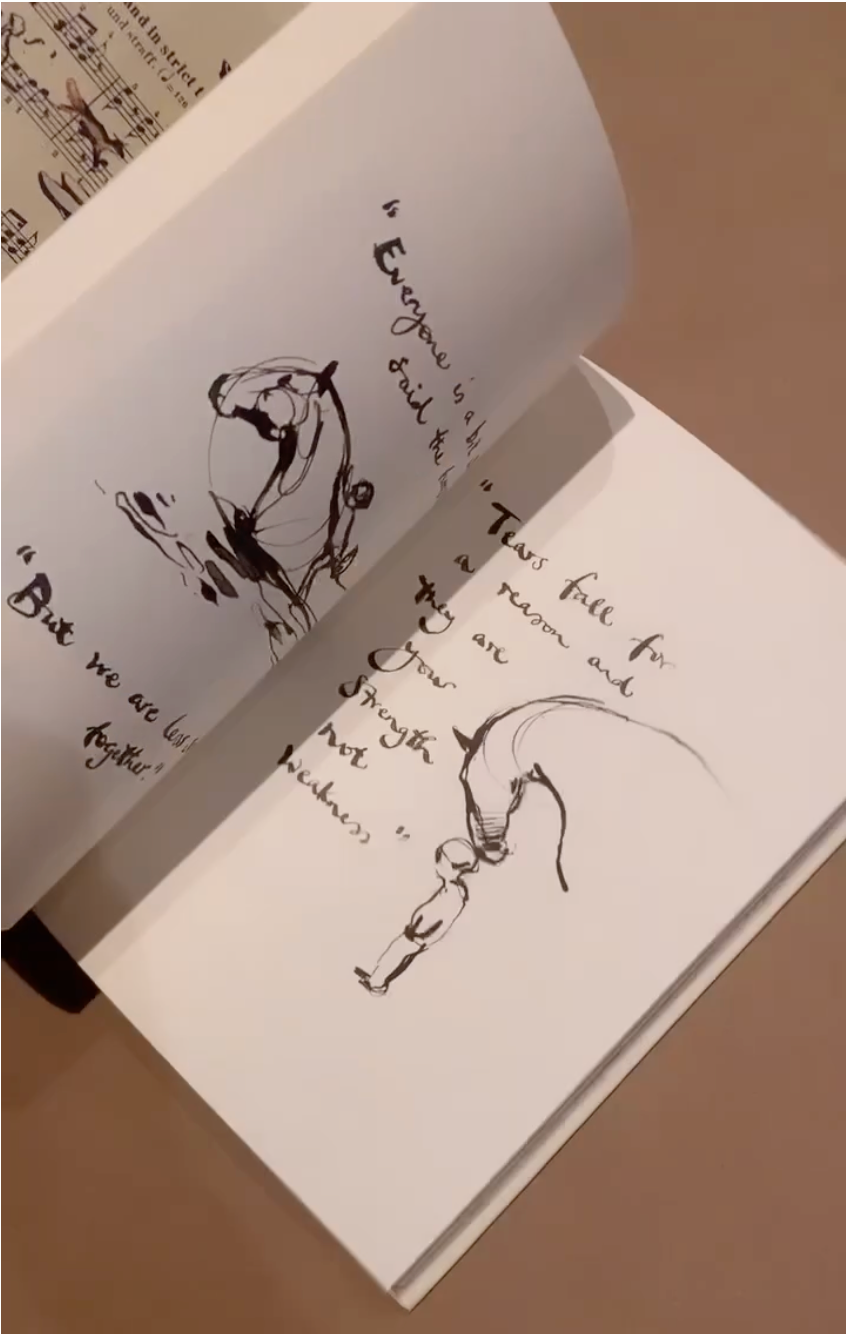 and in strict t
und straff. (♩=126
"Everyone is a bi
said the
"But we are less
together."
"Tears fall for
a reason and
they are
your
strength
not
weakness"